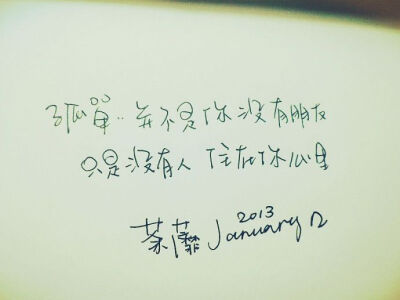 孤單..并不是你没有朋友
只是没有人住在你心里
荼蘼 2013 January 12